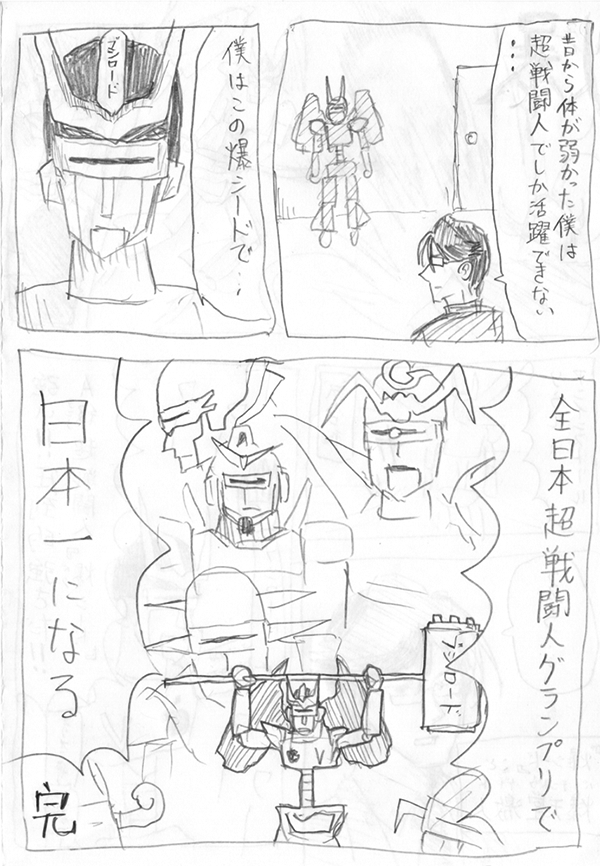 昔から体が弱かった僕は
超戦闘人でしか活躍できない
…
僕はこの爆シードで…
ブシロード
全日本超戦闘人グランプリで
日本一になる
ブシロード
完